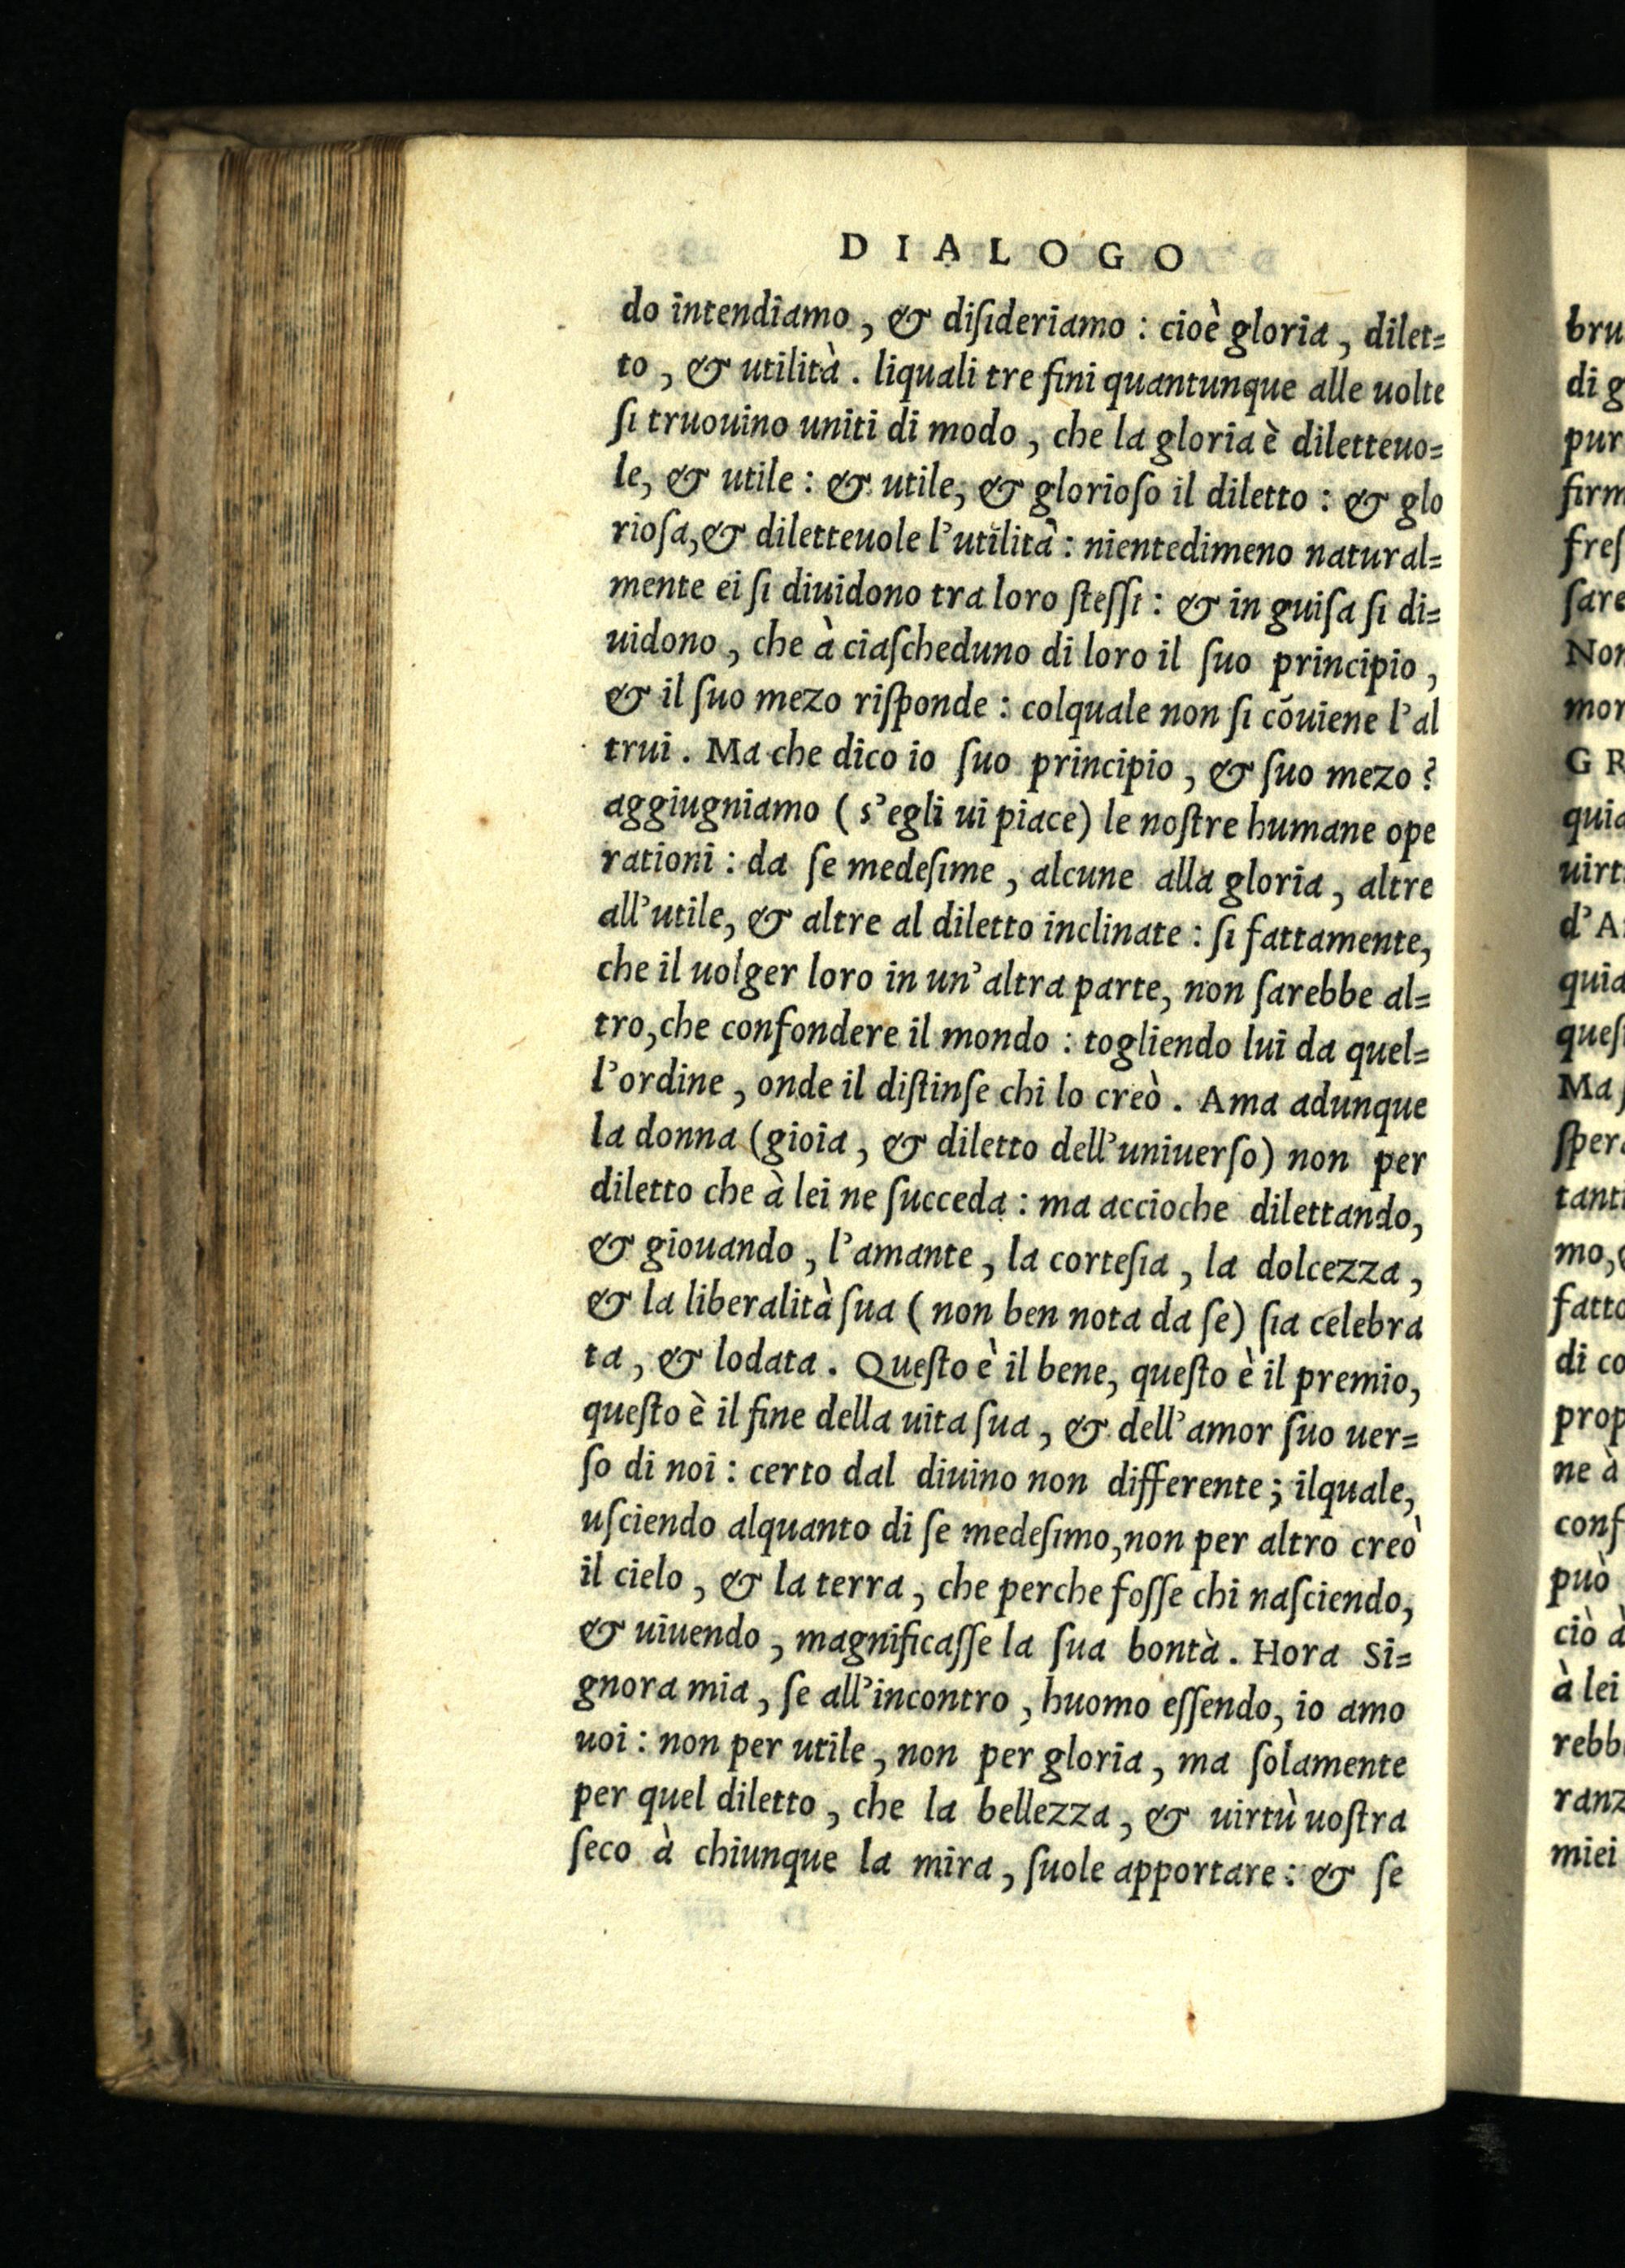 DIALOGO
do intendiamo, & diſideriamo : cioè gloria, dilet=
to, & utilità. liquali tre fini quantunque alle uolte
ſi truouino uniti di modo, che la gloria è diletteuo=
le, & utile : & utile, & glorioſo il diletto : & glo
rioſa, & diletteuole l'utilità : nientedimeno natural=
mente ei ſi diuidono tra loro ſteſſi : & in guiſa ſi di=
uidono, che à ciaſcheduno di loro il ſuo principio,
& il ſuo mezo riſponde : colquale non ſi cõuiene l'al
trui. Ma che dico io ſuo principio, & ſuo mezo ?
aggiugniamo ( s'egli ui piace) le noſtre humane ope
rationi : da ſe medeſime, alcune alla gloria, altre
all'utile, & altre al diletto inclinate : ſi fattamente,
che il uolger loro in un'altra parte, non ſarebbe al=
tro, che confondere il mondo : togliendo lui da quel=
l'ordine, onde il diſtinſe chi lo creò. Ama adunque
la donna (gioia, & diletto dell'uniuerſo) non per
diletto che à lei ne ſucceda : ma accioche dilettando,
& giouando, l'amante, la corteſia, la dolcezza,
& la liberalità ſua ( non ben nota da ſe) ſia celebra
ta, & lodata. Queſto è il bene, queſto è il premio,
queſto è il fine della uita ſua, & dell'amor ſuo uer=
ſo di noi : certo dal diuino non differente ; ilquale,
uſciendo alquanto di ſe medeſimo, non per altro creò
il cielo, & la terra, che perche foſſe chi naſciendo,
& uiuendo, magnificaſſe la ſua bontà. Hora Si=
gnora mia, ſe all'incontro, huomo eſſendo, io amo
uoi : non per utile, non per gloria, ma ſolamente
per quel diletto, che la bellezza, & uirtù uoſtra
ſeco à chiunque la mira, ſuole apportare : & ſe
bru
di g
pur
firm
freſ
ſare
Non
mor
G R
quia
uirt
d'A
quia
queſ
Ma
ſper
tanti
mo,
fatto
di co
prop
ne à
conf
può
ciò à
à lei
rebb
ranz
miei